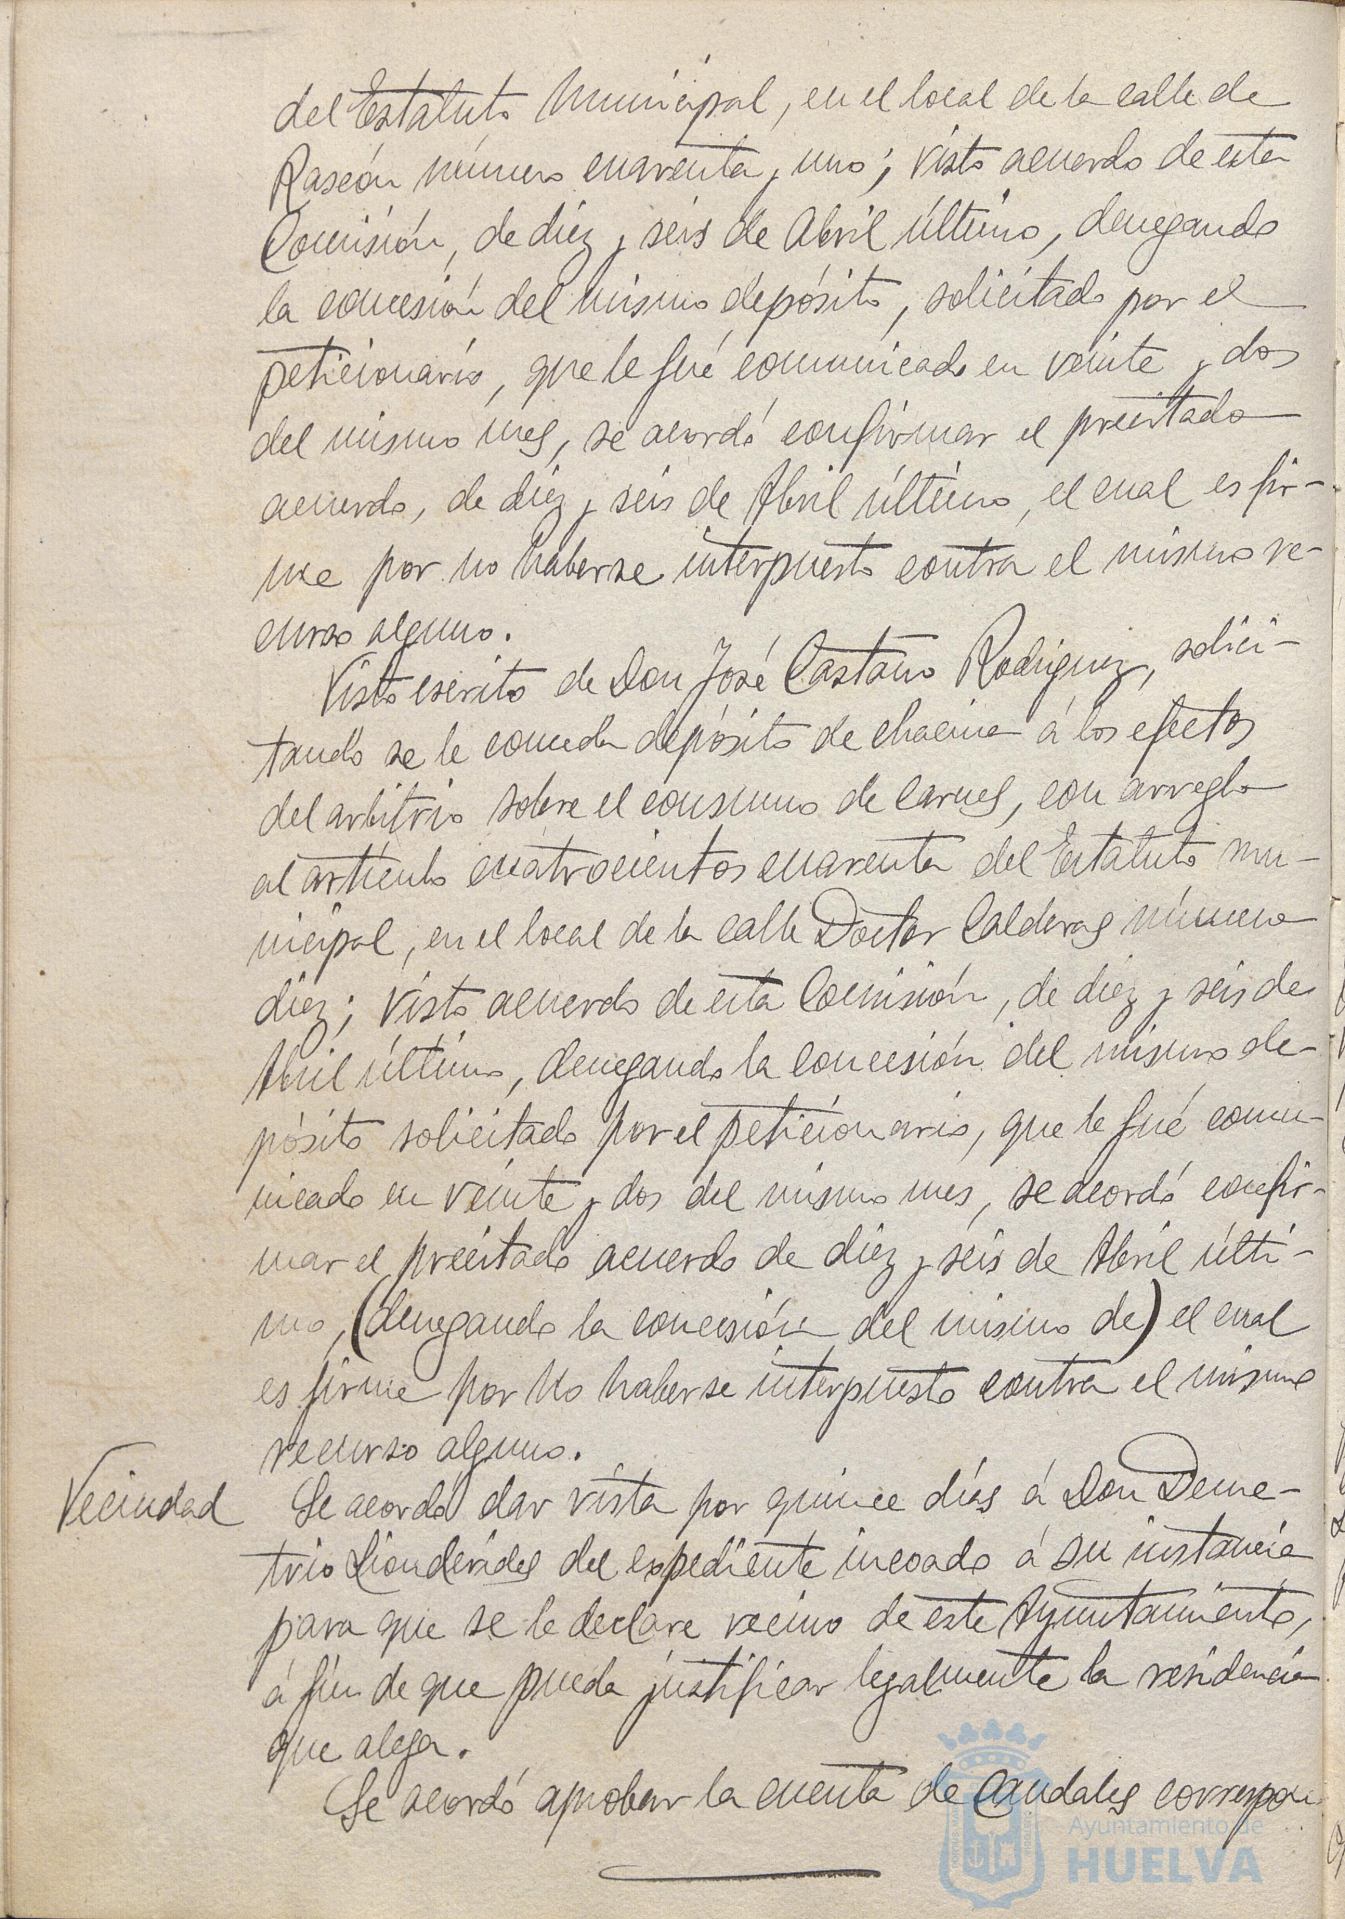 del Estatuto Municipal, en el local de la calle de
Rascón número cuarenta y uno; visto acuerdo de esta
Comisión, de diez y seis de Abril último, denegando
la concesión del mismo depósito, solicitado por el
peticionario, que le fué comunicado en veinte y dos
del mismo mes, se acordó confirmar el precitado
acuerdo, de diez y seis de Abril último, el cual es fir-
me por no haberse interpuesto contra el mismo re-
curso alguno.
Visto escrito de Don José Castaño Rodríguez, solici-
tando se le conceda depósito de chacina á los efectos
del arbitrio sobre el consumo de carnes, con arreglo
al artículo cuatrocientos cuarenta del Estatuto mu-
nicipal, en el local de la calle Doctor Calderas número
diez; visto acuerdo de esta Comisión, de diez y seis de
Abril último, denegando la concesión del mismo de-
pósito solicitado por el peticionario, que le fué comu-
nicado en veinte y dos del mismo mes, se acordó confir-
mar el precitado acuerdo de diez y seis de Abril últi-
mo, (denegando la concesión del mismo de) el cual
es firme por no haberse interpuesto contra el mismo
recurso alguno.
Vecindad Se acordó dar vista por quince días á Don Deme-
trio del expediente incoado á su instancia
para que se le declare vecino de este Ayuntamiento,
á fin de que pueda justificar legalmente la residencia
que alega.
Se acordó aprobar la cuenta de Caudales correspon-
Ayuntamiento de
HUELVA